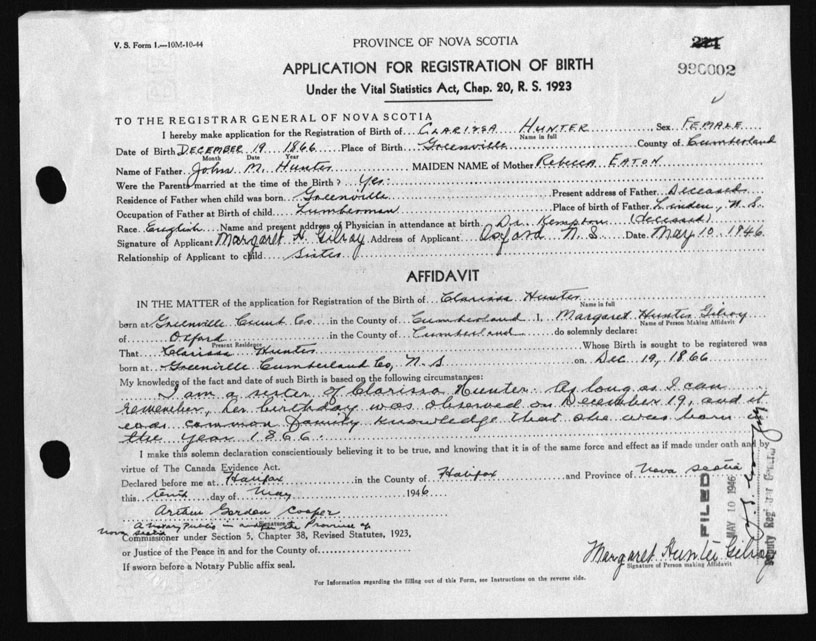 V. S. Form 1.—10M-10-44
PROVINCE OF NOVA SCOTIA
990002
APPLICATION FOR REGISTRATION OF BIRTH
Under the Vital Statistics Act, Chap. 20, R. S. 1923
TO THE REGISTRAR GENERAL OF NOVA SCOTIA
I hereby make application for the Registration of Birth of Clarissa Hunter Sex Female
Name in full
Date of Birth December 19 1866 Place of Birth Greenville County of Cumberland
Month Date Year
Name of Father John M. Hunter MAIDEN NAME of Mother Rebecca Eaton
Were the Parents married at the time of the Birth? Yes.
Residence of Father when child was born Greenville Present address of Father Deceased
Occupation of Father at Birth of child Lumberman Place of birth of Father Linden, N.S.
Race English Name and present address of Physician in attendance at birth Dr. Kempton (deceased)
Signature of Applicant Margaret H. Gilroy Address of Applicant Oxford N.S. Date May 10 1946
Relationship of Applicant to child Sister
AFFIDAVIT
IN THE MATTER of the application for Registration of the Birth of Clarissa Hunter
Name in full
born at Greenville Cumb Co in the County of Cumberland I, Margaret Hunter Gilroy
Name of Person Making Affidavit
of Oxford in the County of Cumberland do solemnly declare:
Present Residence
That Clarissa Hunter Whose Birth is sought to be registered was
born at Greenville Cumberland Co, N.S on Dec 19, 1866
My knowledge of the fact and date of such Birth is based on the following circumstances:
I am a sister of Clarissa Hunter. As long as I can
remember, her birthday was observed on December 19, and it
was common family knowledge that she was born in
the year 1866.
I make this solemn declaration conscientiously believing it to be true, and knowing that it is of the same force and effect as if made under oath and by
virtue of The Canada Evidence Act.
Declared before me at Halifax in the County of Halifax and Province of Nova Scotia
this tenth day of May 1946
Arthur Gordon Cooper
Signature
A Notary Public in and for the Province of
Nova Scotia
Commissioner under Section 5, Chapter 38, Revised Statutes, 1923,
or Justice of the Peace in and for the County of
If sworn before a Notary Public affix seal.
Margaret Hunter Gilroy
Signature of Person making Affidavit
For Information regarding the filling out of this Form, see Instructions on the reverse side.
FILED
MAY 10 1946
Deputy Registrar General